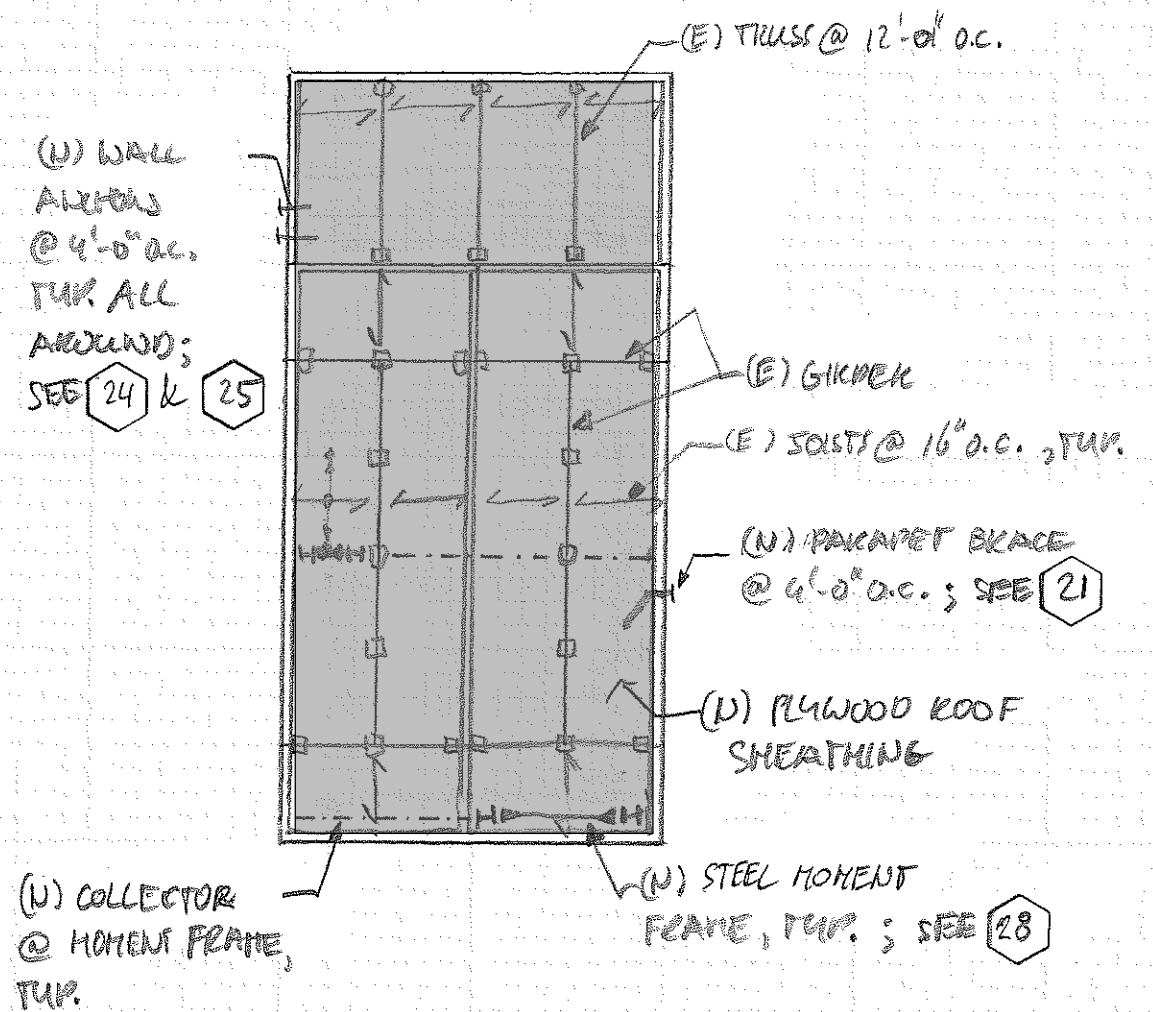 (E) TRUSS @ 12'-0" O.C.
(N) WALL
ANCHORS
@ 4'-0" O.C.
TYP. ALL
AROUND;
SEE 24 & 25
(E) GIRDER
(E) JOISTS @ 16" O.C., TYP.
(N) PARAPET BRACE
@ 4'-0" O.C.; SEE 21
(N) PLYWOOD ROOF
SHEATHING
(N) COLLECTOR
@ MOMENT FRAME,
TYP.
(N) STEEL MOMENT
FRAME, TYP.; SEE 28